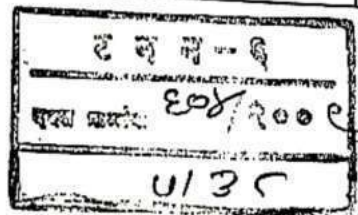 ट न न - ६
दस्त क्रमांक ६०४/२००९
५/३८